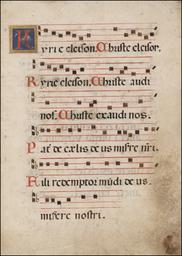 Kyrie eleison. Christe eleison.
Kyrie eleison. Christe audi
nos. Christe exaudi nos.
Pat̃ de cælis deus misere nr̃i.
Fili redemptor mũdi deus.
misere nostri.